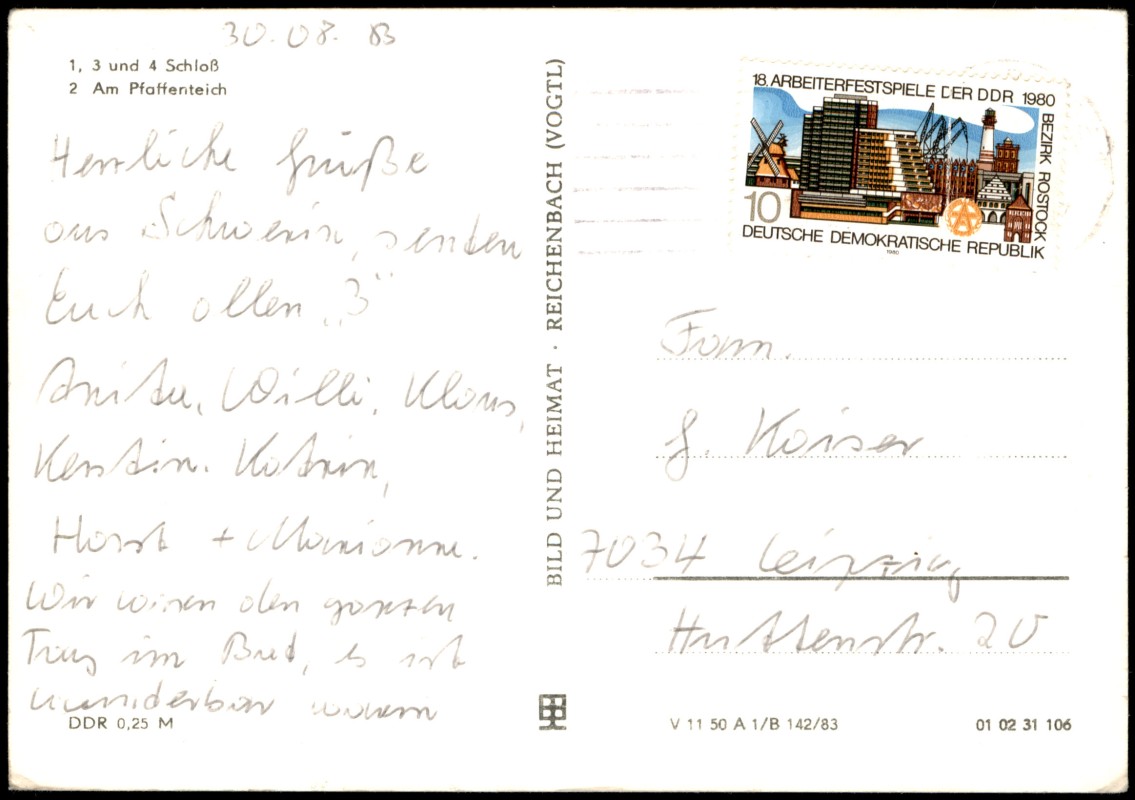 30.08.83
1, 3 und 4 Schloß
2 Am Pfaffenteich
Herrliche Grüße
aus Schwerin, senden
Euch allen „3“
Anita, Willi, Klaus,
Kerstin. Katrin,
Horst + Marianne.
Wir waren den ganzen
Tag im Bad, es ist
wunderbar warm
DDR 0,25 M
BILD UND HEIMAT · REICHENBACH (VOGTL)
18. ARBEITERFESTSPIELE DER DDR 1980
BEZIRK ROSTOCK
10
DEUTSCHE DEMOKRATISCHE REPUBLIK
1980
Fam.
G. Kaiser
7034 Leipzig
Huttenstr. 20
V 11 50 A 1/B 142/83
01 02 31 106